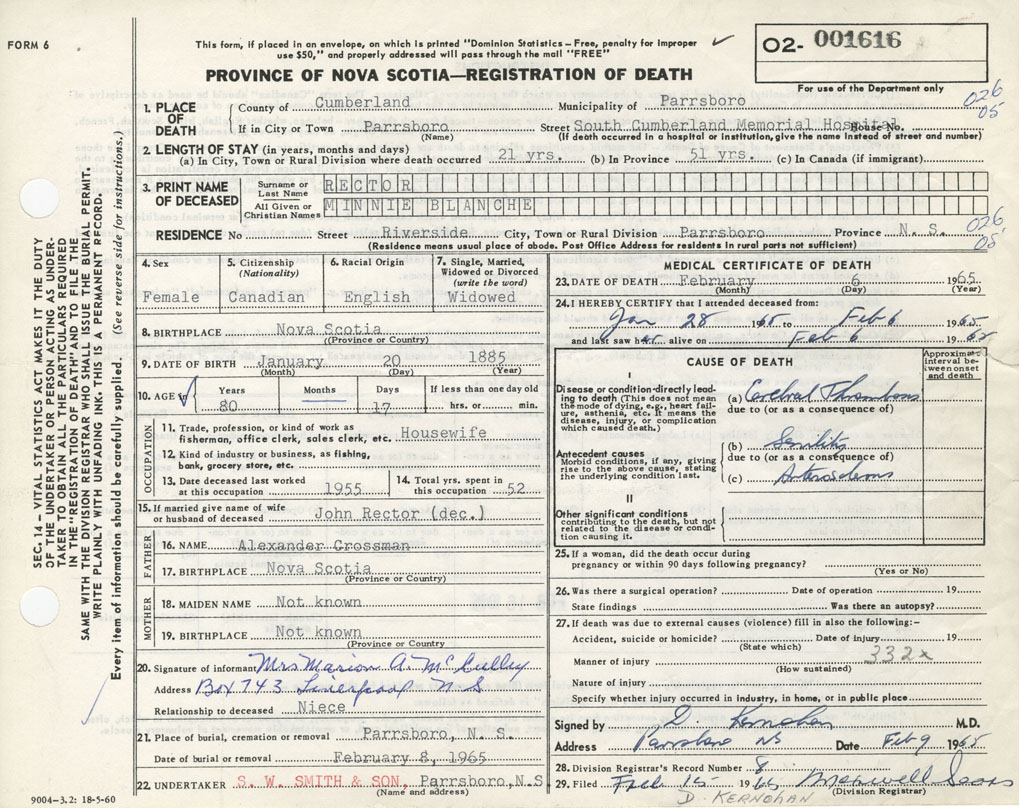 FORM 6
This form, if placed in an envelope, on which is printed "Dominion Statistics – Free, penalty for improper
use $50," and properly addressed will pass through the mail "FREE"
O2- 001616
For use of the Department only
PROVINCE OF NOVA SCOTIA—REGISTRATION OF DEATH
026
05
1. PLACE OF DEATH
County of Cumberland Municipality of Parrsboro
If in City or Town Parrsboro Street South Cumberland Memorial Hospital House No.
(Name) (If death occurred in a hospital or institution, give the name instead of street and number)
2. LENGTH OF STAY (in years, months and days)
(a) In City, Town or Rural Division where death occurred 21 yrs. (b) In Province 51 yrs. (c) In Canada (if immigrant)
3. PRINT NAME OF DECEASED
Surname or Last Name RECTOR
All Given or Christian Names MINNIE BLANCHE
026
05
RESIDENCE No Street Riverside City, Town or Rural Division Parrsboro Province N. S.
(Residence means usual place of abode. Post Office Address for residents in rural parts not sufficient)
SEC. 14 – VITAL STATISTICS ACT MAKES IT THE DUTY
OF THE UNDERTAKER OR PERSON ACTING AS UNDER-
TAKER TO OBTAIN ALL THE PARTICULARS REQUIRED
IN THE "REGISTRATION OF DEATH" AND TO FILE THE
SAME WITH THE DIVISION REGISTRAR WHO SHALL ISSUE THE BURIAL PERMIT.
WRITE PLAINLY WITH UNFADING INK. THIS IS A PERMANENT RECORD.
Every item of information should be carefully supplied. (See reverse side for instructions.)
4. Sex Female
5. Citizenship (Nationality) Canadian
6. Racial Origin English
7. Single, Married, Widowed or Divorced (write the word) Widowed
8. BIRTHPLACE Nova Scotia
((Province or Country)
9. DATE OF BIRTH January 20 1885
(Month) (Day) (Year)
10. AGE in Years 80 Months Days 17 If less than one day old hrs. or min.
OCCUPATION
11. Trade, profession, or kind of work as
fisherman, office clerk, sales clerk, etc. Housewife
12. Kind of industry or business, as fishing,
bank, grocery store, etc.
13. Date deceased last worked
at this occupation 1955
14. Total yrs. spent in
this occupation 52
15. If married give name of wife
or husband of deceased John Rector (dec.)
FATHER
16. NAME Alexander Crossman
17. BIRTHPLACE Nova Scotia
(Province or Country)
MOTHER
18. MAIDEN NAME Not known
19. BIRTHPLACE Not known
(Province or Country
20. Signature of informant Mrs Marion A. McCulley
Address Box 743 Liverpool N S
Relationship to deceased Niece
21. Place of burial, cremation or removal Parrsboro, N. S.
Date of burial or removal February 8, 1965
22. UNDERTAKER S. W. SMITH & SON, Parrsboro,N.S
(Name and address)
9004–3.2: 18-5-60
MEDICAL CERTIFICATE OF DEATH
23. DATE OF DEATH February 6 1965
(Month) (Day) (Year)
24. I HEREBY CERTIFY that I attended deceased from:
Jan 28 1965 to Feb 6 1965
and last saw her alive on Feb 6 1965
CAUSE OF DEATH
Approximate interval between onset and death
I
Disease or condition directly lead-
ing to death (This does not mean
the mode of dying, e.g., heart fail-
ure, asthenia, etc. It means the
disease, injury, or complication
which caused death.)
(a) Cerebral Thrombosis
due to (or as a consequence of)
Antecedent causes
Morbid conditions, if any, giving
rise to the above cause, stating
the underlying condition last.
(b) Senility
due to (or as a consequence of)
(c)
II
Other significant conditions
contributing to the death, but not
related to the disease or condi-
tion causing it.
25. If a woman, did the death occur during
pregnancy or within 90 days following pregnancy?
(Yes or No)
26. Was there a surgical operation? Date of operation 19
State findings Was there an autopsy?
27. If death was due to external causes (violence) fill in also the following:–
Accident, suicide or homicide? Date of injury 19
(State which)
332x
Manner of injury
(How sustained)
Nature of injury
Specify whether injury occurred in industry, in home, or in public place
Signed by D. Kernohan M.D.
Address Parrsboro NS Date Feb 9 1965
28. Division Registrar's Record Number 8
29. Filed Feb 15 1965 Maxwell
(Division Registrar)
D. KERNOHAN